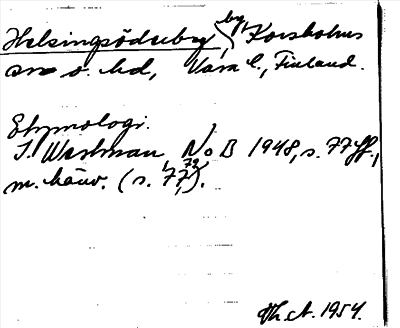 Helsingsådseby, by, Korsholms
sn o. hd, Vasa l., Finland.
Etymologi.
I. Westman NoB 1948, s. 77 ff.,
m. hänv. (s. 77, 79).
Th. A. 1954.